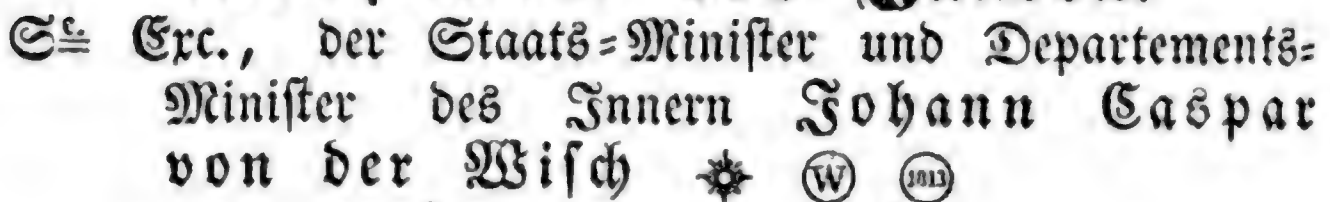 Se. Exc., der Staats=Minister und Departements=
Minister des Innern Johann Caspar
von der Wisch W 1813